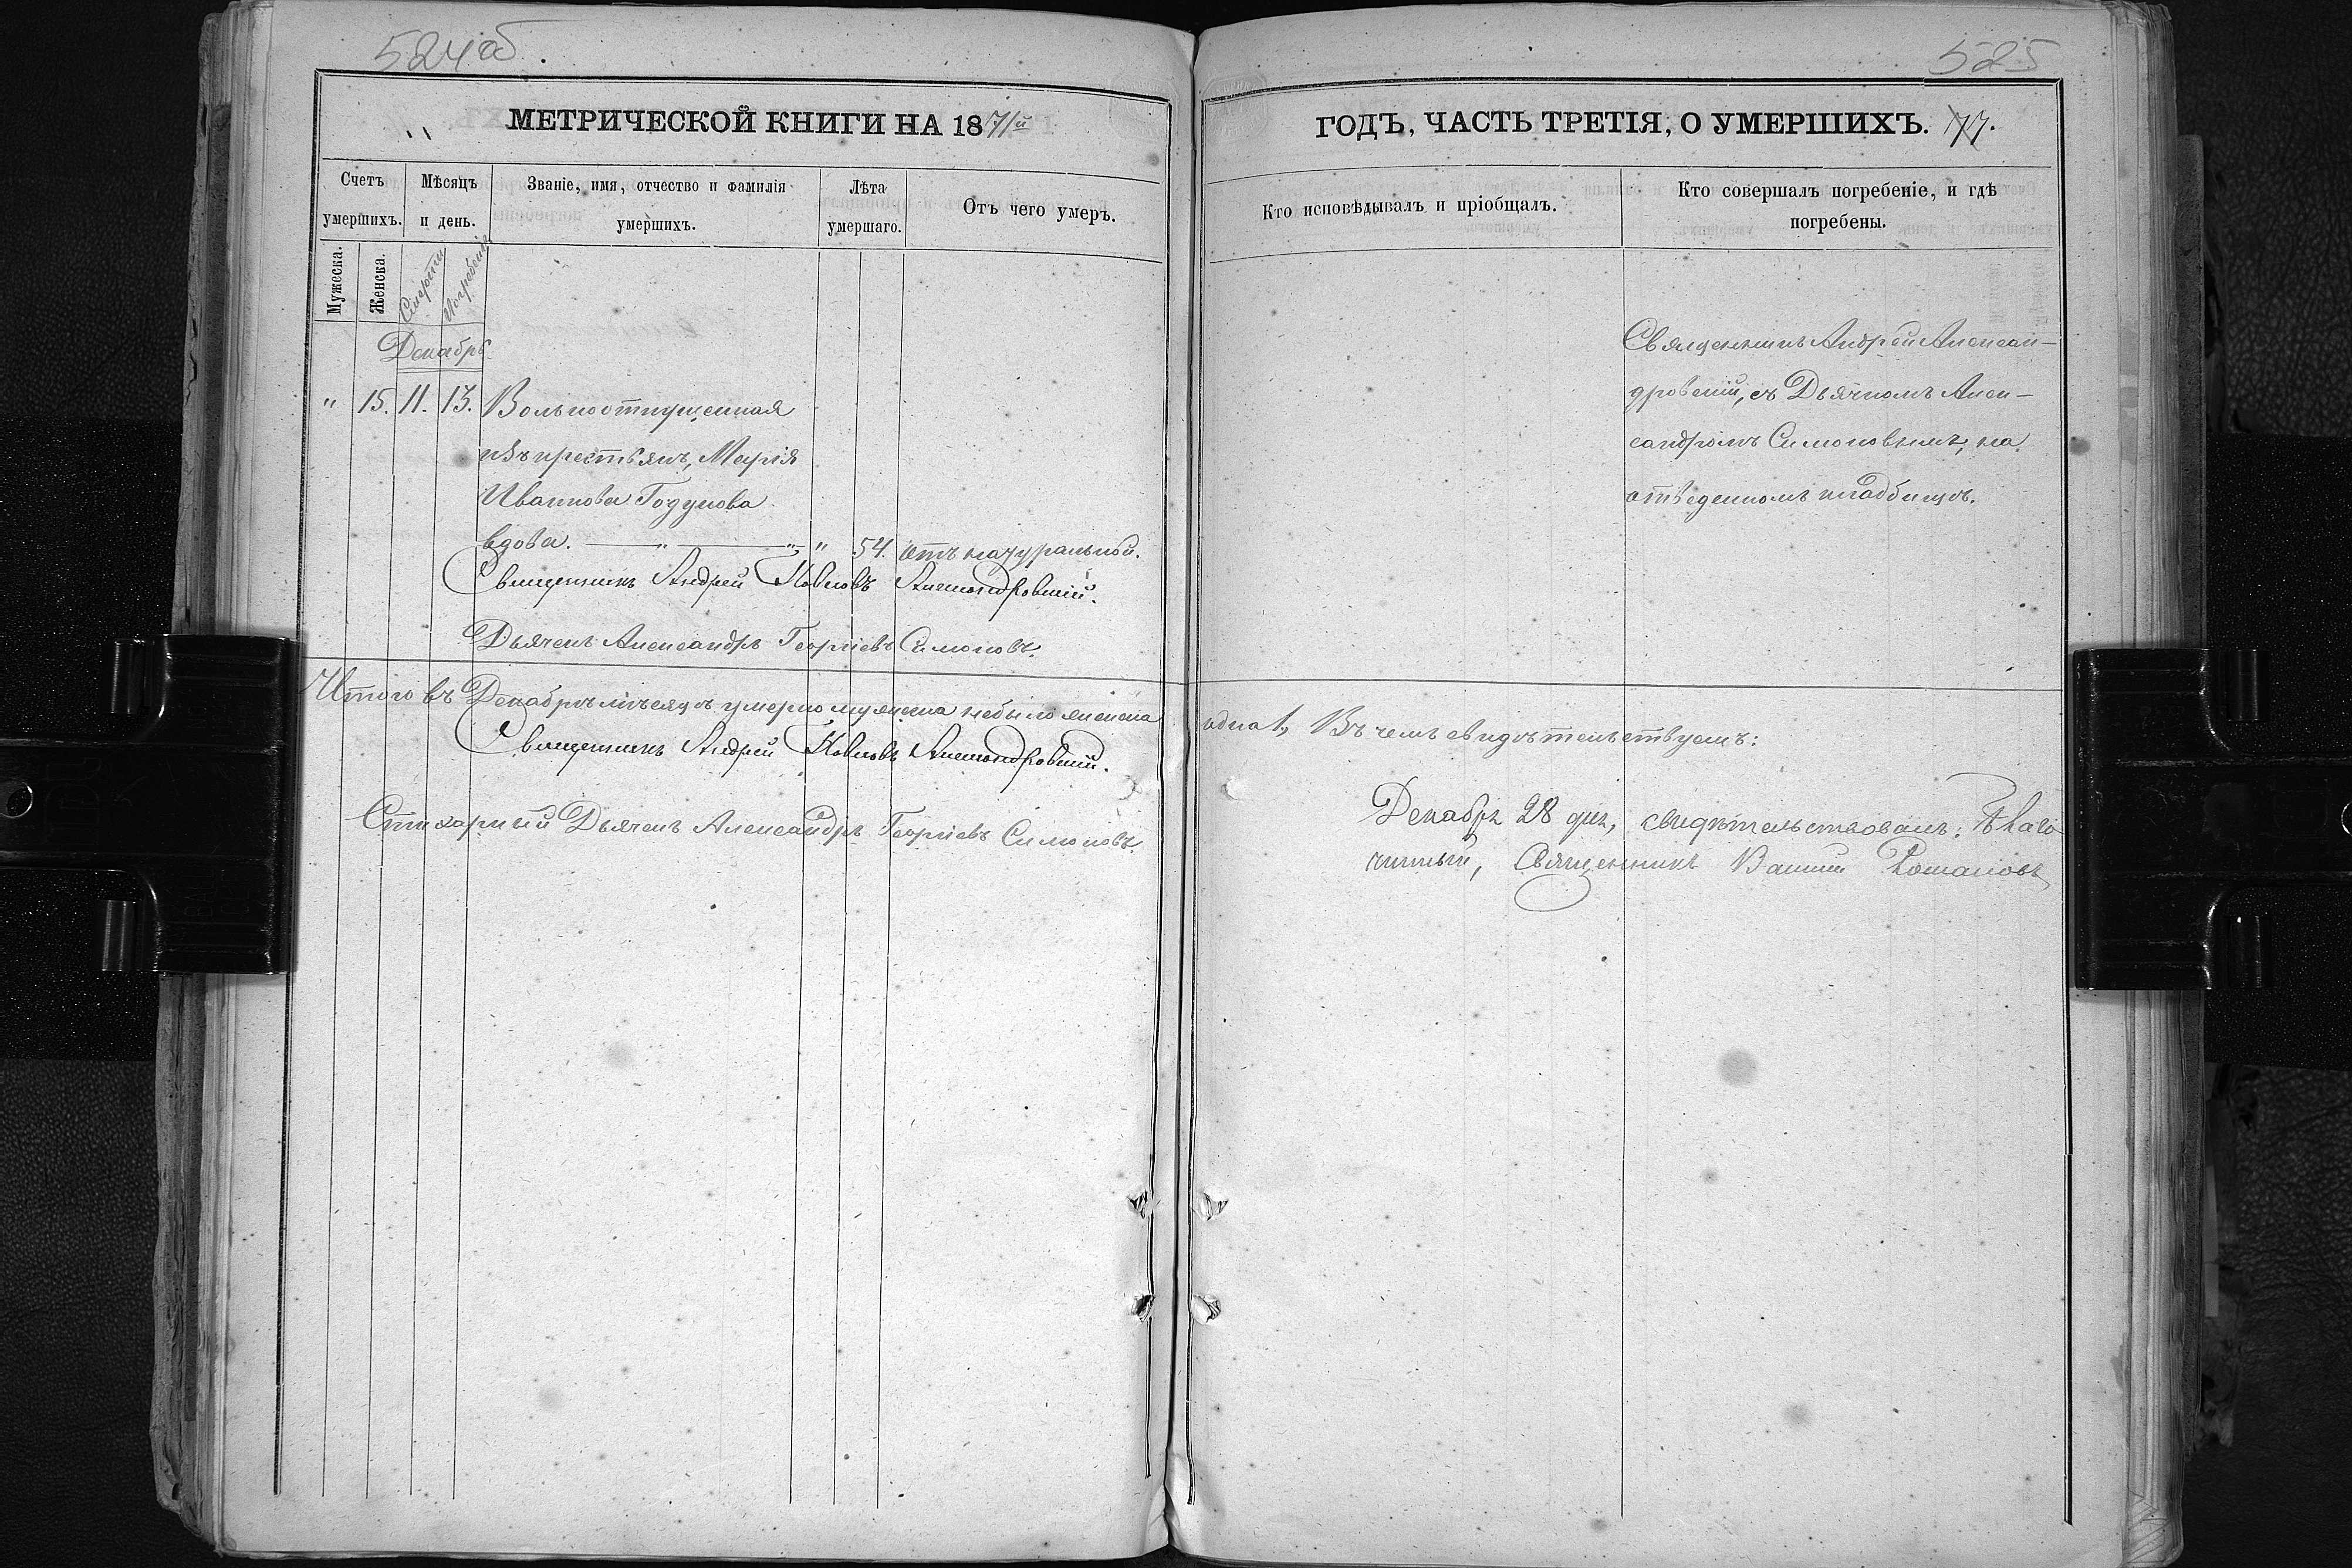 524об.
525
МЕТРИЧЕСКОЙ КНИГИ НА 1871й
ГОДЪ, ЧАСТЬ ТРЕТІЯ, О УМЕРШИХЪ. 77.
Счетъ умершихъ.
Мѣсяцъ и день.
Званіе, имя, отчество и фамилія умершихъ.
Лѣта умершаго.
Отъ чего умеръ.
Кто исповѣдывалъ и пріобщалъ.
Кто совершалъ погребеніе, и гдѣ погребены.
Мужеска.
Женска.
Смерти
Погребенія
Декабрь.
" 15. 11. 13. Вольноотпущенная
изъ крестьянъ, Марія
Иванова Годунова
вдова. — " — " " 54. отъ натуральной.
Священникъ Андрей Павловъ Александровскій.
Дьячекъ Александръ Георгіевъ Симоновъ.
Священникъ Андрей Алексан-
дровскій, съ Дьячкомъ Алек-
сандромъ Симоновымъ, на
отведенномъ кладбищѣ.
Итого въ Декабрѣ мѣсяцѣ умерло мужеска небыло женска
одна 1, Въ чемъ свидѣтельствуемъ:
Священникъ Андрей Павловъ Александровскій.
Стихарный Дьячекъ Александръ Георгіевъ Симоновъ.
Декабря 28 дня, свидѣтельствовалъ: Благо
чинный, Священникъ Романовъ